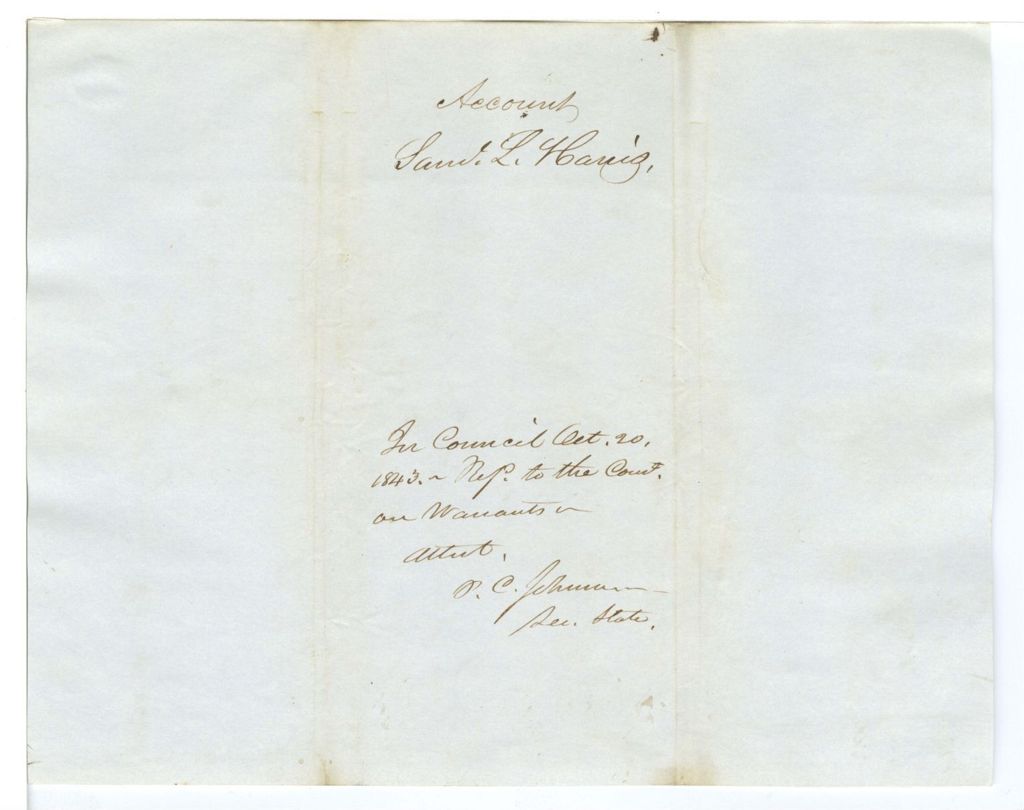 Account
Saml. L. Harris,
In Council Oct. 20,
1843. ~ Ref. to the Comt.
on Warrants ~
Attest,
P. C. Johnson
Sec. State.